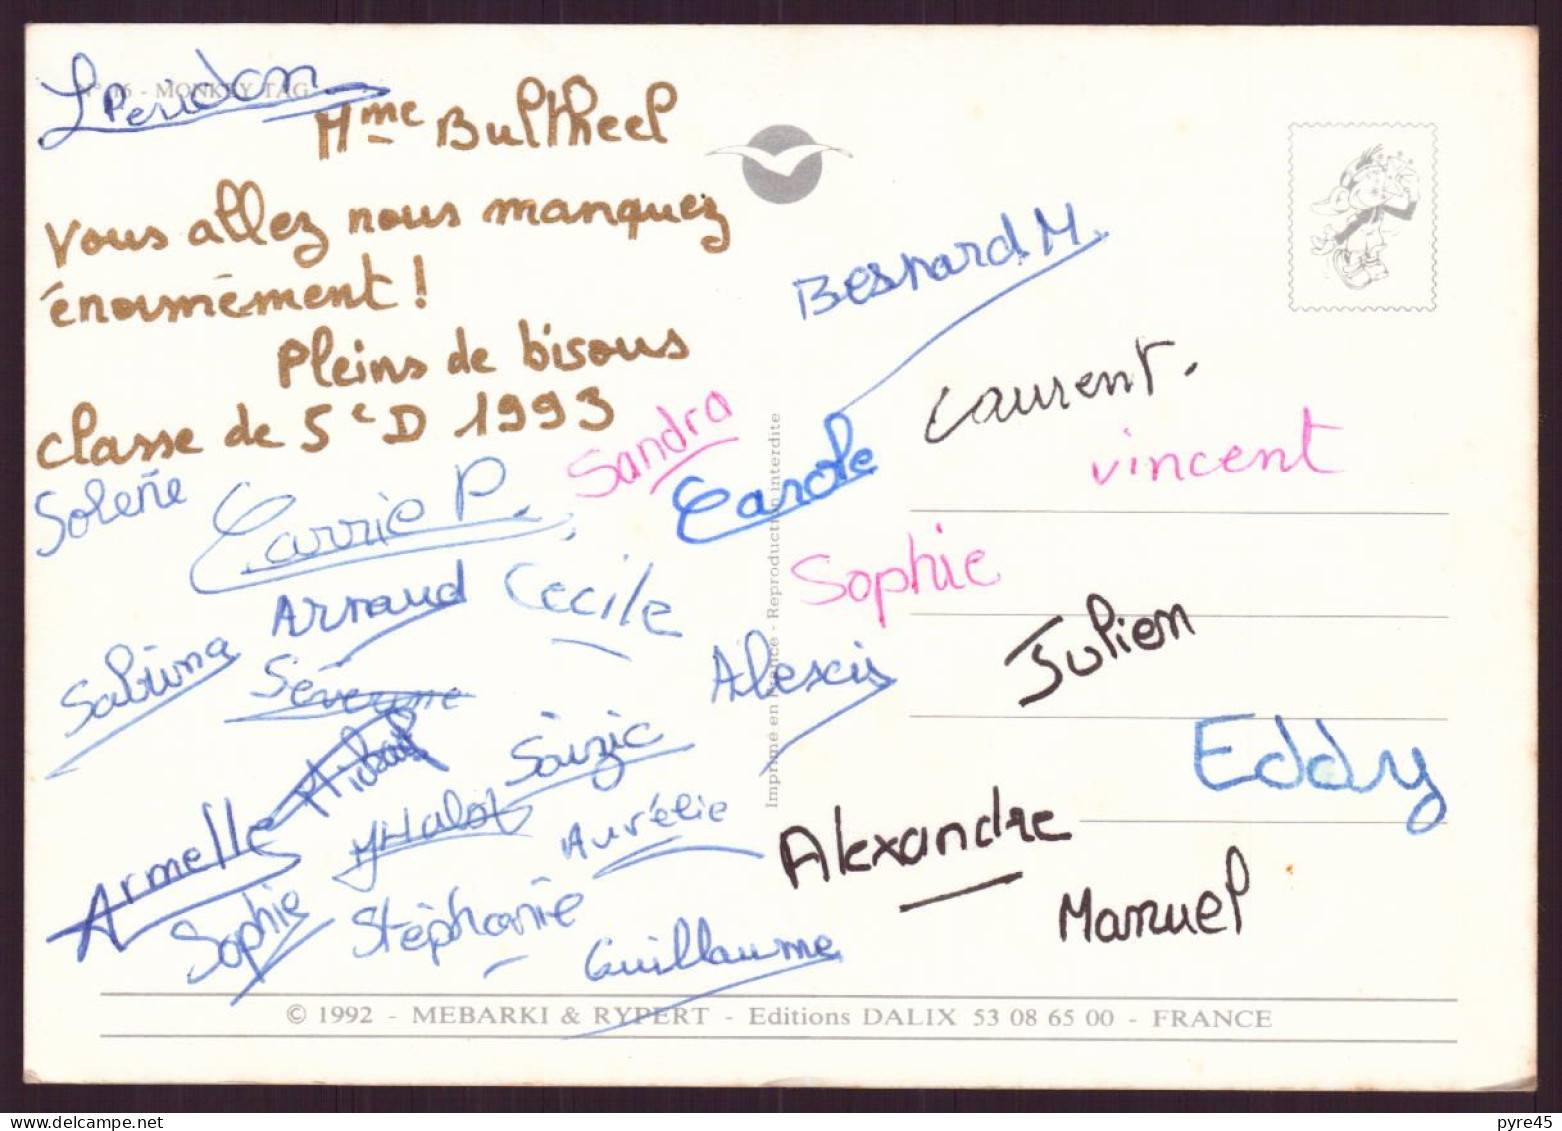 N° 16 - MONKEY TAG
L Peridon
Mme Bultheel
Vous allez nous manquez
énormément !
Pleins de bisous
classe de 5e D 1993
Besnard M.
Laurent.
vincent
Sandra
Carole
Solène
Carrie P.
Sophie
Arnaud
Cécile
Julien
Sabrina
Séverine
Alexis
Eddy
Soizic
Armelle
Y Halot
Aurélie
Alexandre
Manuel
Sophie
Stéphanie
Guillaume
Imprimé en France - Reproduction interdite
© 1992 - MEBARKI & RYPERT - Editions DALIX 53 08 65 00 - FRANCE
pyre45